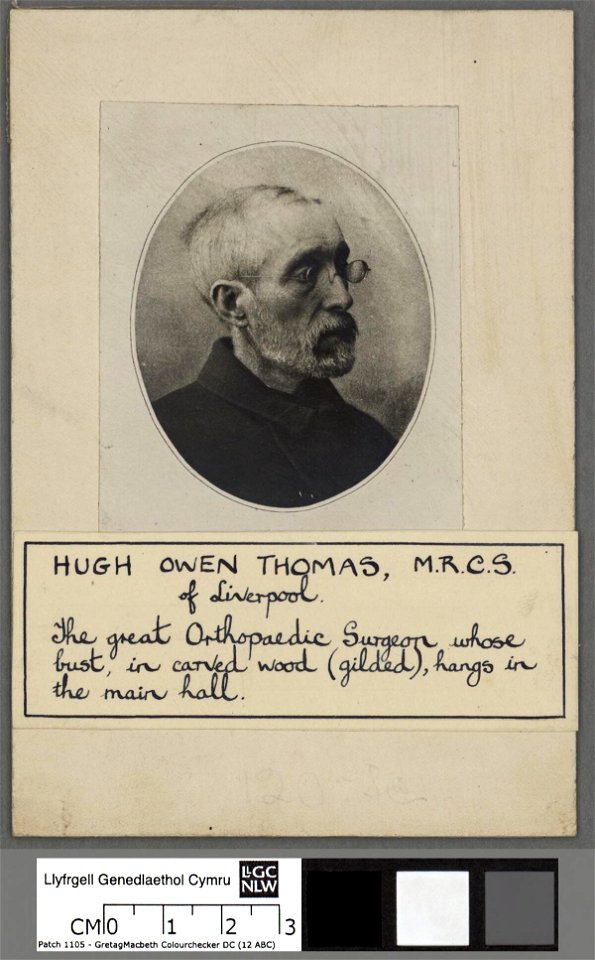 HUGH OWEN THOMAS, M.R.C.S.
of Liverpool.
The great Orthopaedic Surgeon whose
bust, in carved wood (gilded), hangs in
the main hall.
Llyfrgell Genedlaethol Cymru LLGC
NLW
CM 0 1 2 3
Patch 1105 - GretagMacbeth Colourchecker DC (12 ABC)